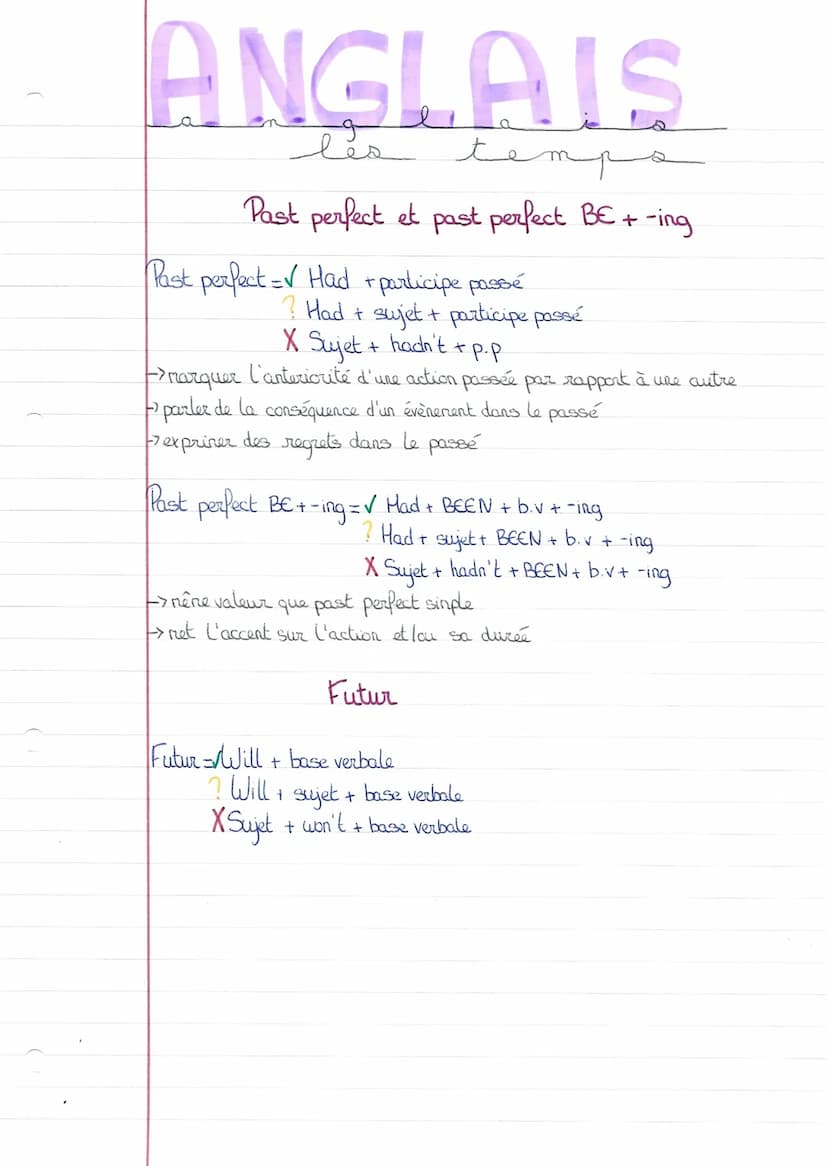 ANGLAIS
anglais
les temps
Past perfect et past perfect BE + -ing
Past perfect = ✓ Had + participe passé
? Had + sujet + participe passé
X Sujet + hadn't + p.p
→ marquer l'anteriorité d'une action passée par rapport à une autre
→ parler de la conséquence d'un évènement dans le passé
→ exprimer des regrets dans le passé
Past perfect BE + -ing = ✓ Had + BEEN + b.v + -ing
? Had + sujet + BEEN + b.v + -ing
X Sujet + hadn't + BEEN + b.v + -ing
→ même valeur que past perfect simple
→ met l'accent sur l'action et/ou sa durée
Futur
Futur = ✓ Will + base verbale
? Will + sujet + base verbale
X Sujet + won't + base verbale